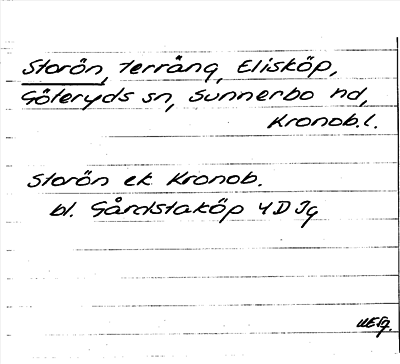 Storön, terräng, Elisköp,
Göteryds sn, Sunnerbo hd,
Kronob.l.
Storön ek Kronob.
bl. Gårdstaköp 4D Ig